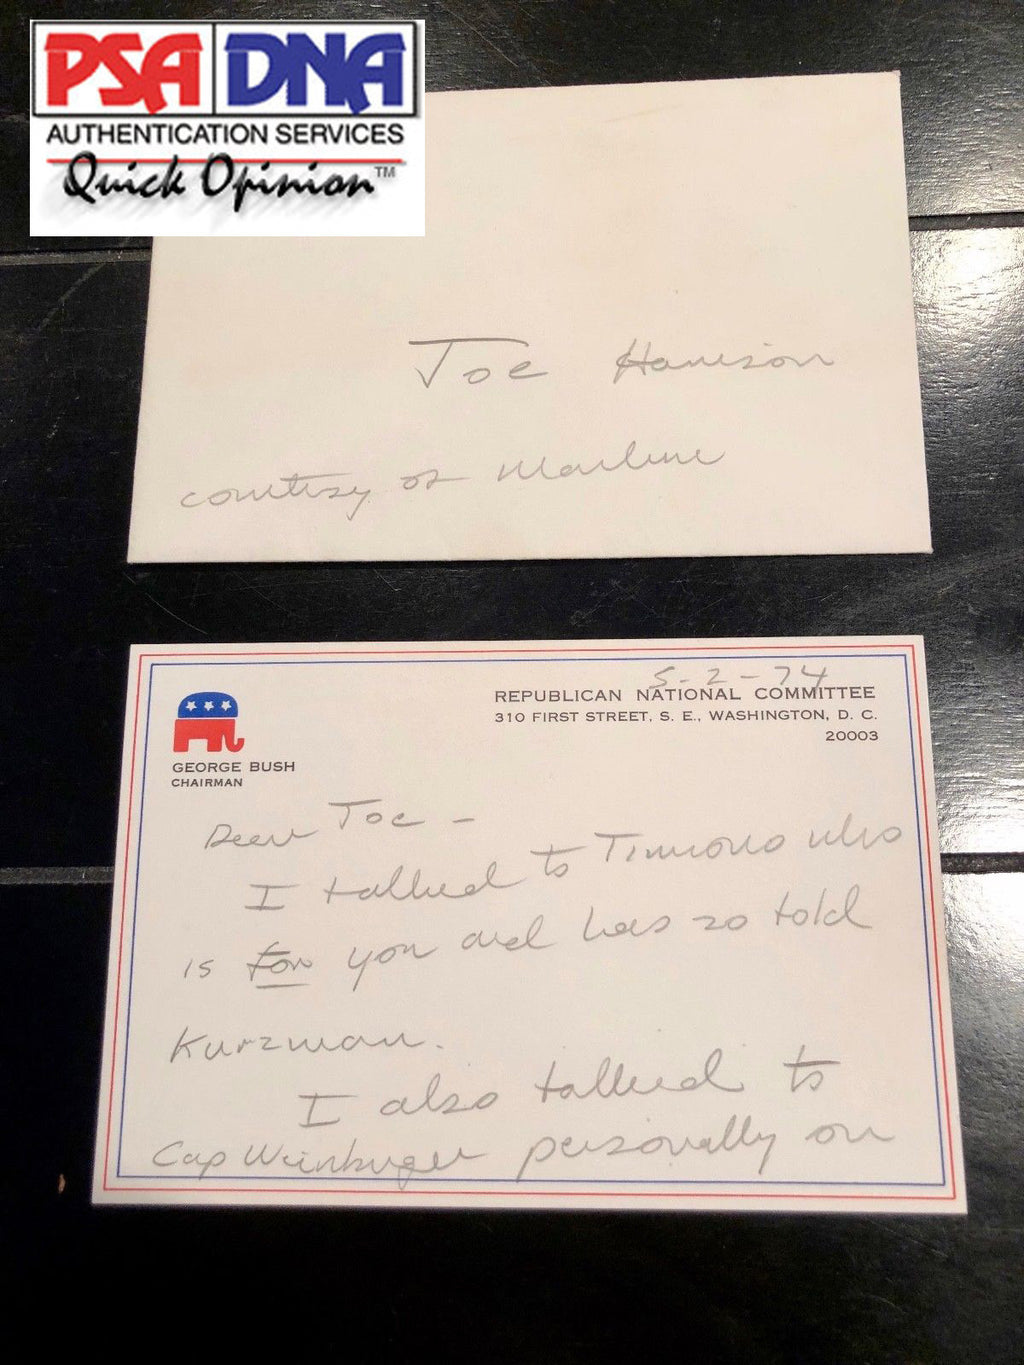 PSA DNA
AUTHENTICATION SERVICES
Quick Opinion™
Joe Harrison
courtesy of Marlene
5-2-74
REPUBLICAN NATIONAL COMMITTEE
310 FIRST STREET, S. E., WASHINGTON, D. C.
20003
GEORGE BUSH
CHAIRMAN
Dear Joe -
I talked to Timmons who
is for you and has so told
Kurzman.
I also talked to
Cap Weinberger personally on